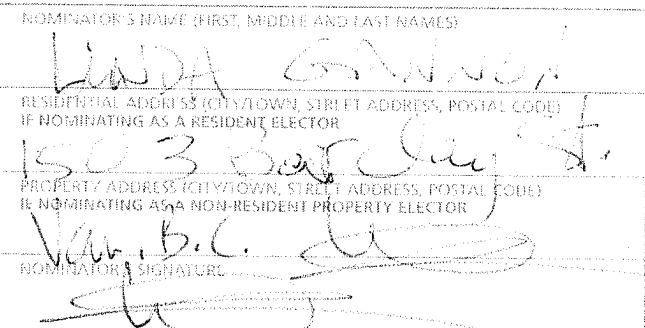 NOMINATOR'S NAME (FIRST, MIDDLE AND LAST NAMES)
LINDA GANNON
RESIDENTIAL ADDRESS (CITY/TOWN, STREET ADDRESS, POSTAL CODE)
IF NOMINATING AS A RESIDENT ELECTOR
1503 Barclay St.
PROPERTY ADDRESS (CITY/TOWN, STREET ADDRESS, POSTAL CODE)
IF NOMINATING AS A NON-RESIDENT PROPERTY ELECTOR
Van, B.C.
NOMINATOR'S SIGNATURE